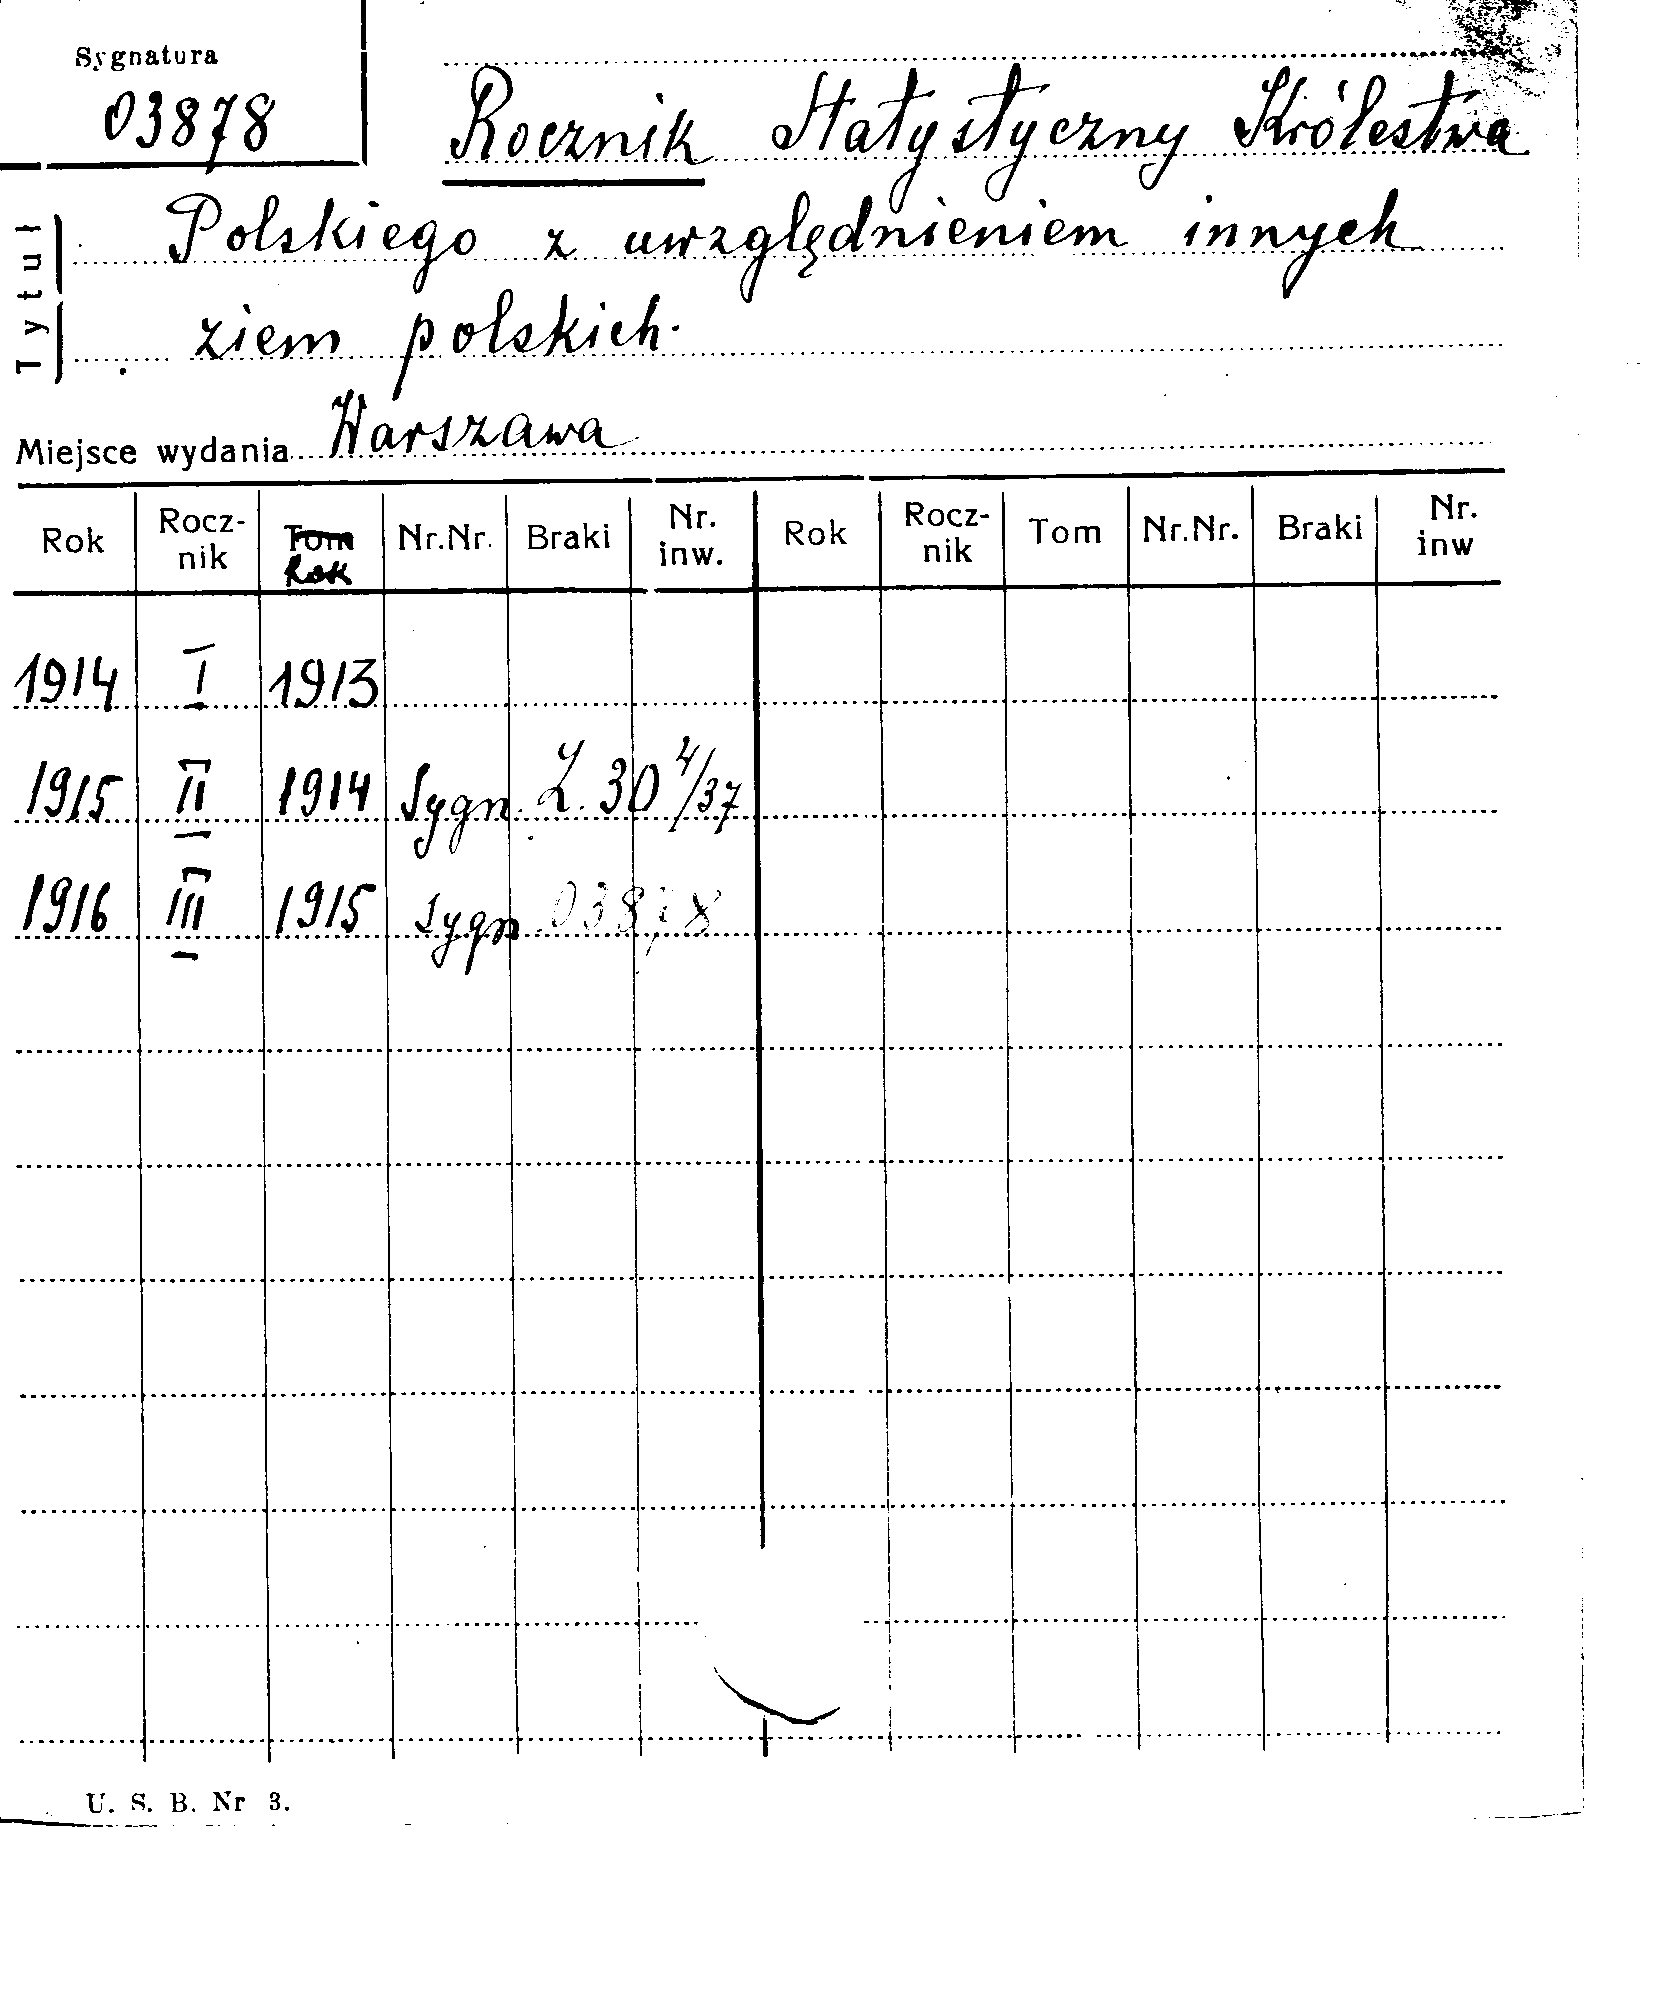 Sygnatura
03878
Rocznik Statystyczny Królestwa
Tytuł
Polskiego z uwzględnieniem innych
ziem polskich.
Miejsce wydania Warszawa
Rok Rocz-nik Tom Rok Nr.Nr. Braki Nr. inw. Rok Rocz-nik Tom Nr.Nr. Braki Nr. inw
1914 I 1913
1915 II 1914 Sygn. Z. 30 4/37
1916 III 1915 Sygn 03878
U. S. B. Nr 3.